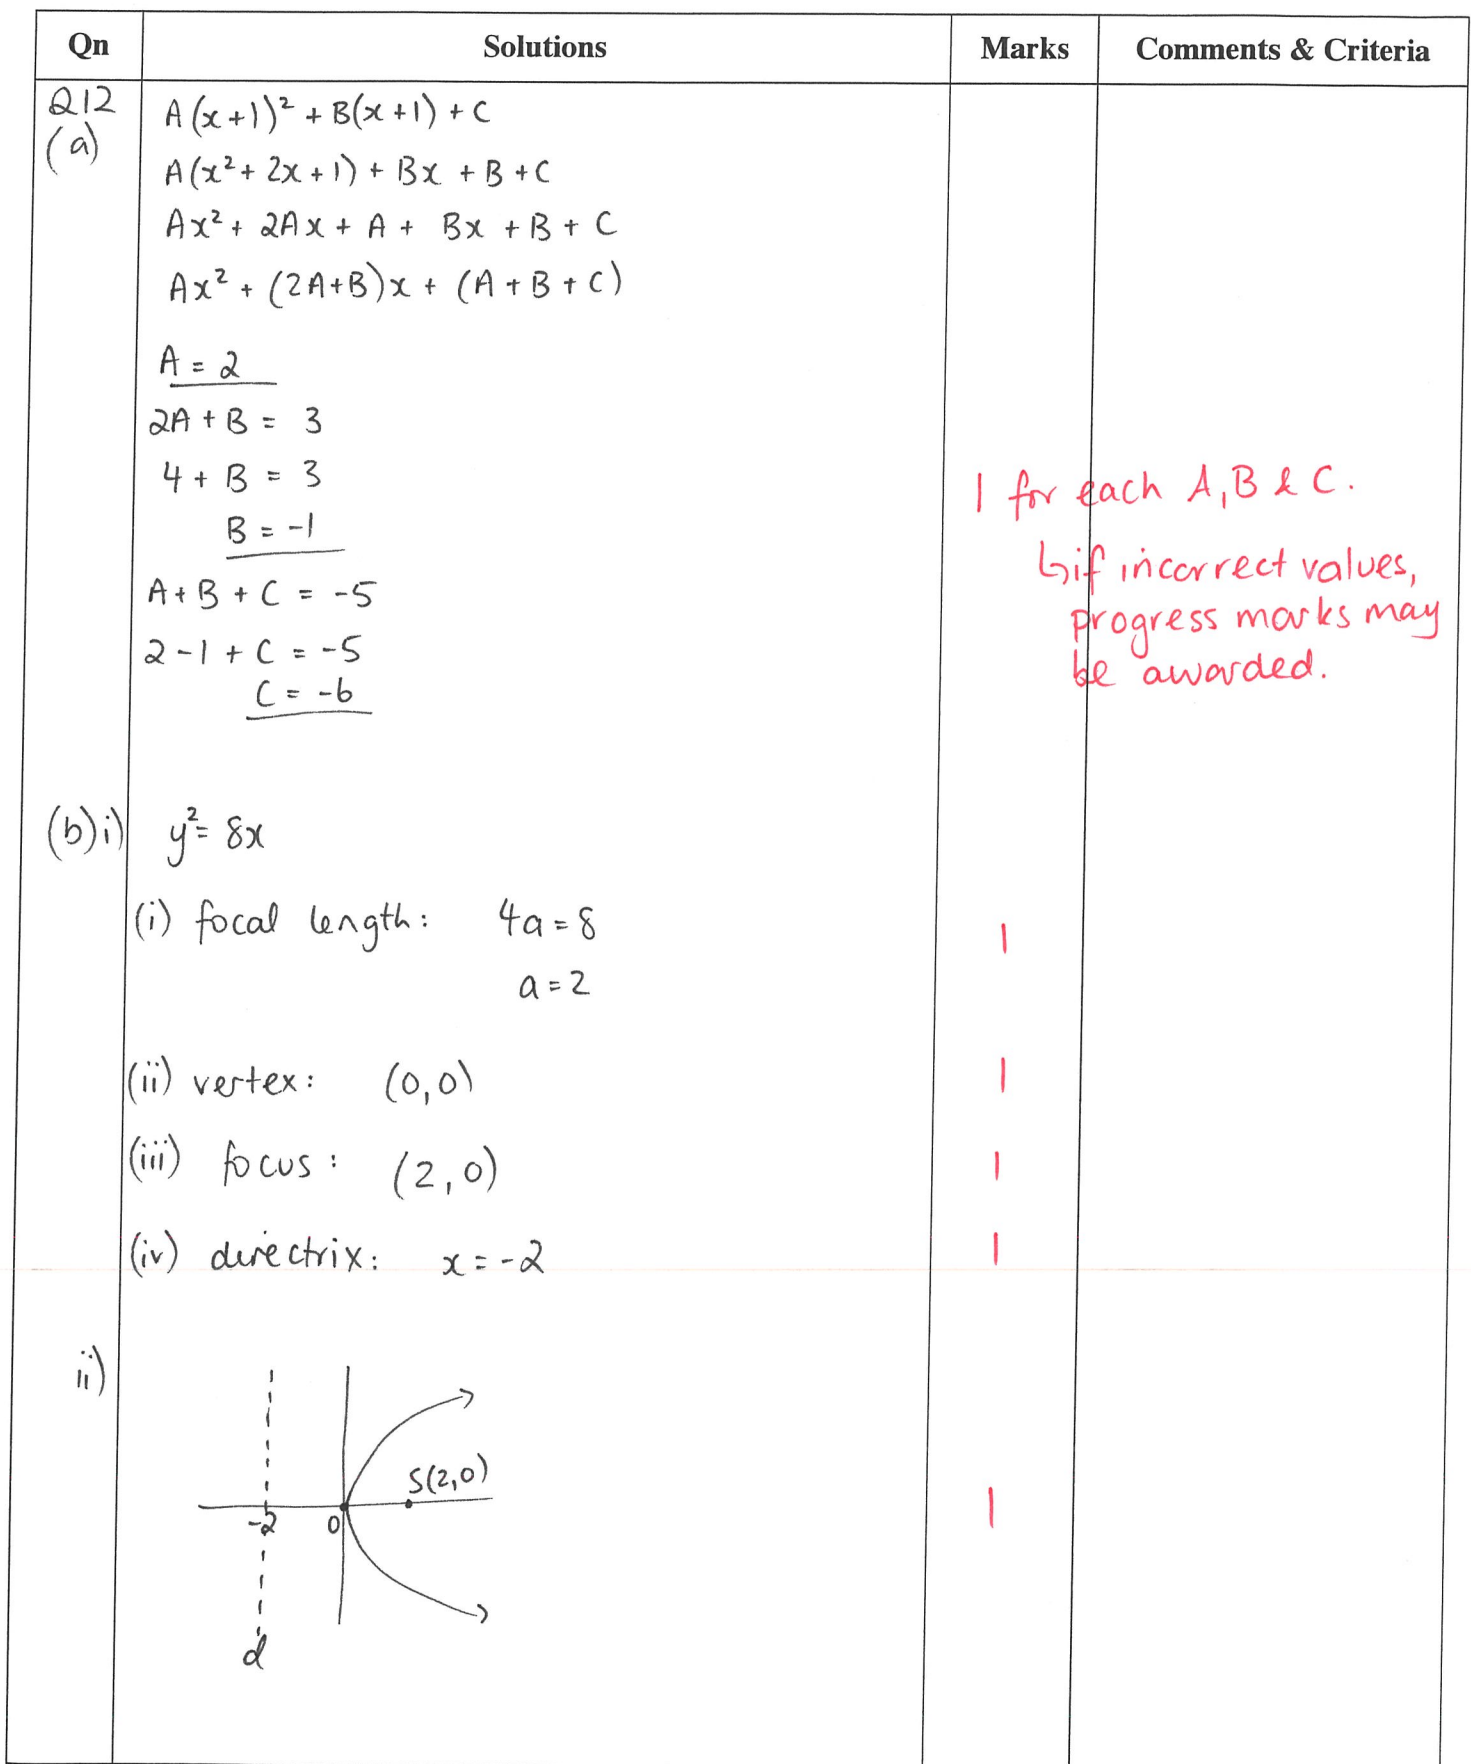 Qn Solutions Marks Comments & Criteria
Q12
(a)
A(x+1)² + B(x+1) + C
A(x² + 2x + 1) + Bx + B + C
Ax² + 2Ax + A + Bx + B + C
Ax² + (2A+B)x + (A + B + C)
A = 2
2A + B = 3
4 + B = 3
B = -1
A + B + C = -5
2 - 1 + C = -5
C = -6
1 for each A, B & C.
↳ if incorrect values,
progress marks may
be awarded.
(b) i) y² = 8x
(i) focal length: 4a = 8 1
a = 2
(ii) vertex: (0,0) 1
(iii) focus: (2,0) 1
(iv) directrix: x = -2 1
ii)
S(2,0)
-2 0 1
d